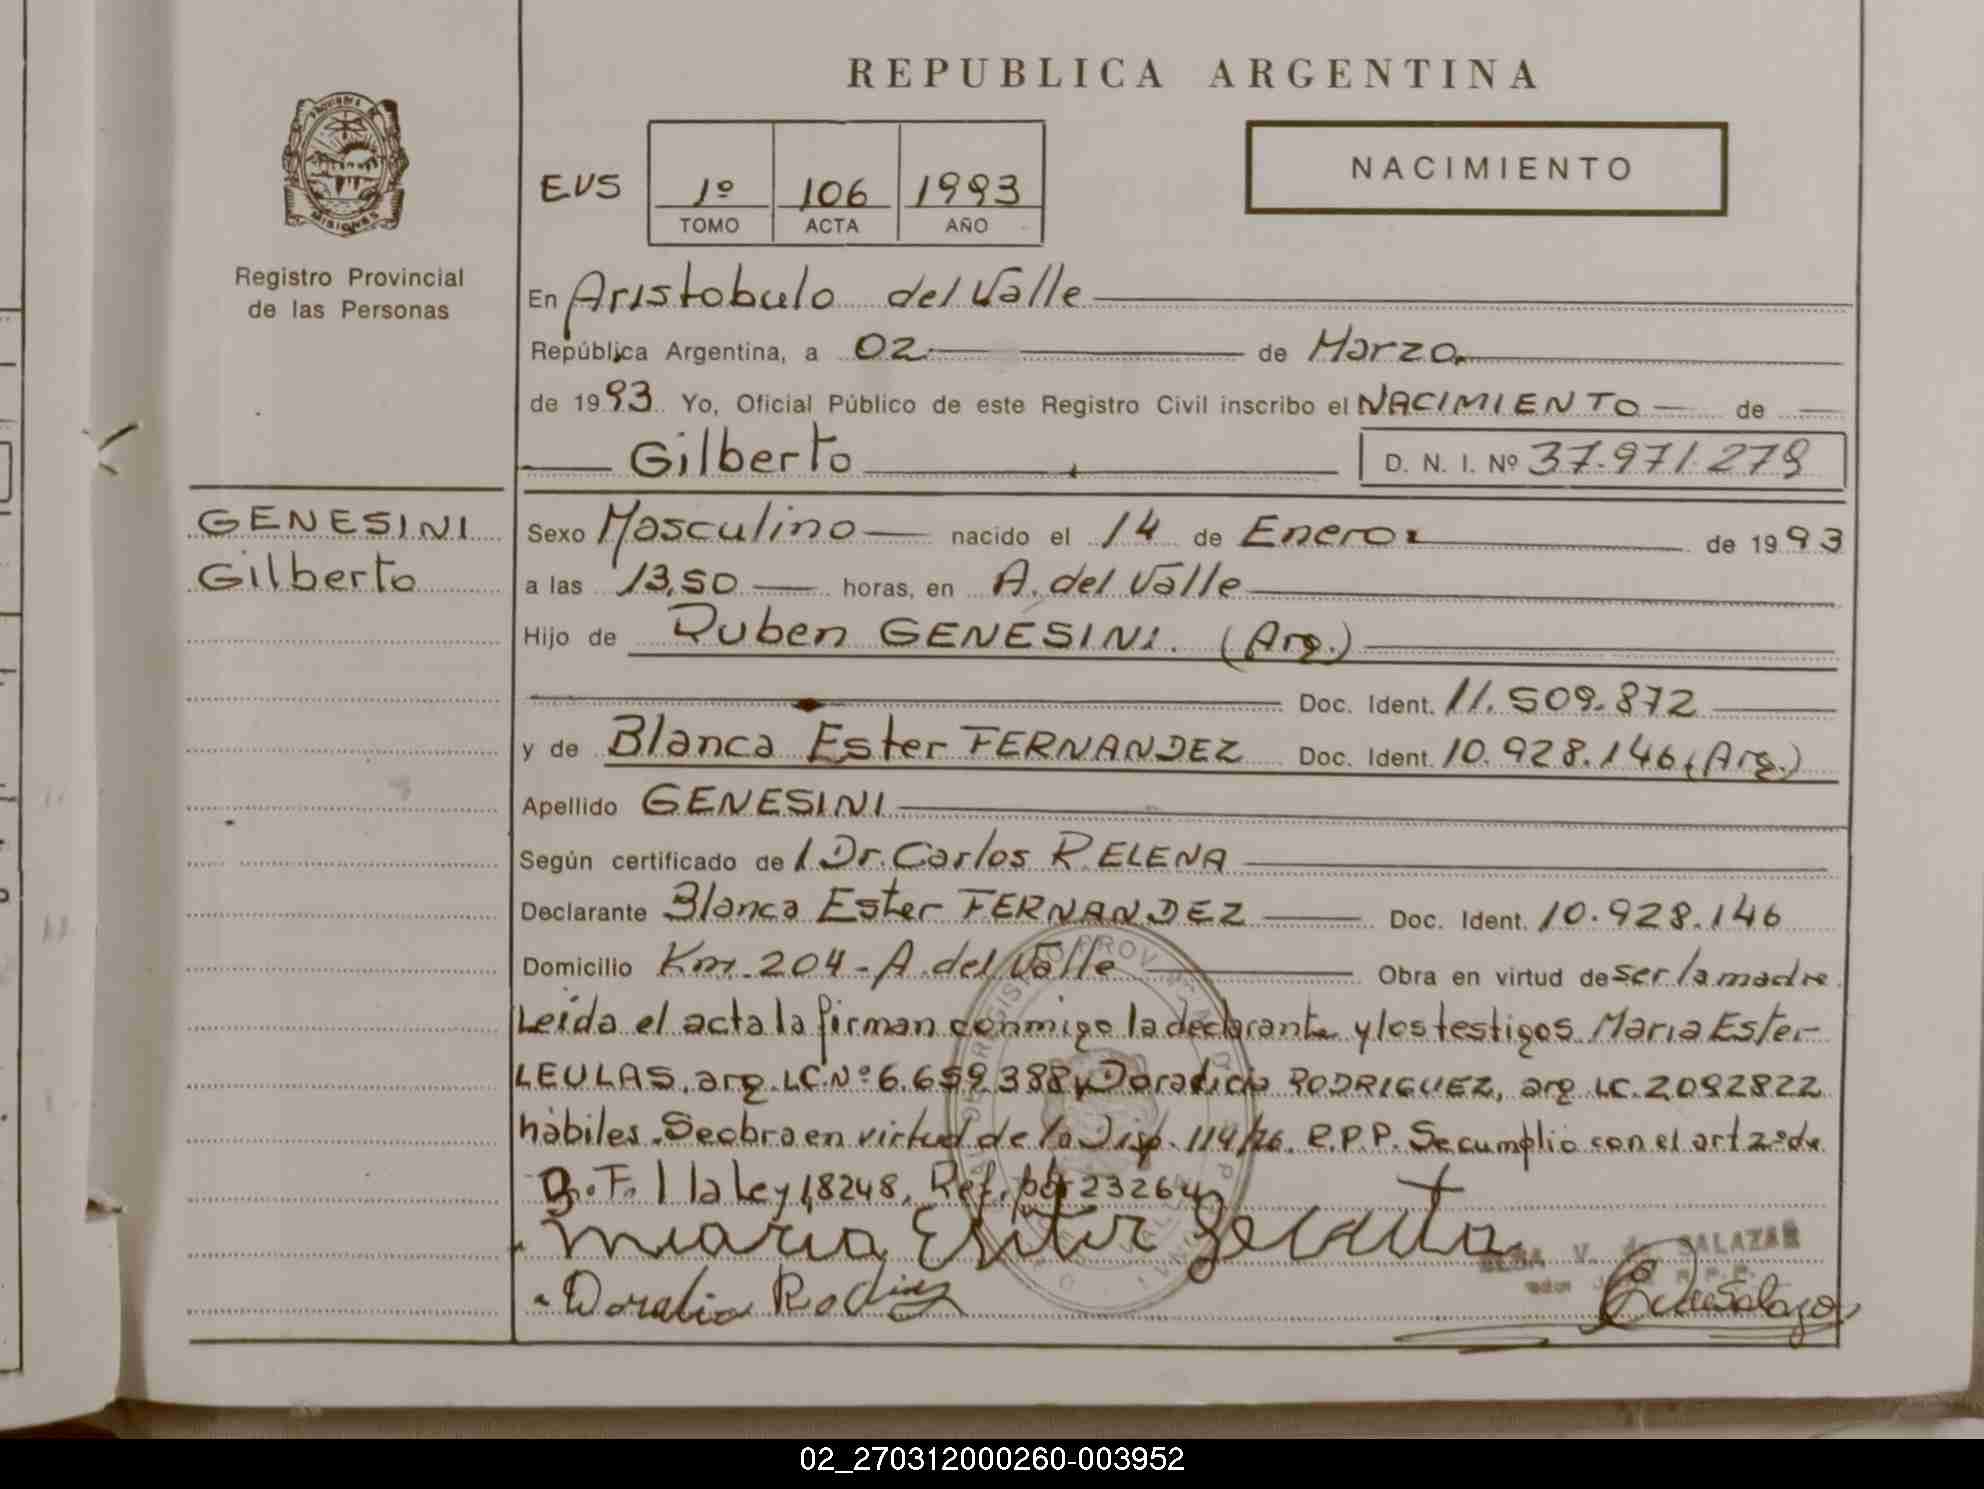 REPUBLICA ARGENTINA
PROVINCIA DE
MISIONES
Registro Provincial
de las Personas
EVS
1º 106 1993
TOMO ACTA AÑO
NACIMIENTO
En Aristobulo del Valle
República Argentina, a 02 de Marzo
de 1993 Yo, Oficial Público de este Registro Civil inscribo el NACIMIENTO de
Gilberto D. N. I. Nº 37.971.279
GENESINI
Gilberto
Sexo Masculino nacido el 14 de Enero de 1993
a las 13,50 horas, en A. del Valle
Hijo de Ruben GENESINI. (Arg.)
Doc. Ident. 11.509.872
y de Blanca Ester FERNANDEZ Doc. Ident. 10.928.146 (Arg.)
Apellido GENESINI
Según certificado de l Dr. Carlos R. ELENA
Declarante Blanca Ester FERNANDEZ Doc. Ident. 10.928.146
Domicilio Km. 204 - A. del Valle Obra en virtud de ser la madre
Leida el acta la firman conmigo la declarante y los testigos Maria Ester
LEULAS, arg. LC.Nº 6.659.388 y RODRIGUEZ, arg. LC. 2092822
hábiles. Se obra en virtud de la Disp. 114/76. R.P.P. Se cumplio con el art 2º de
la Ley 18248, Ref. por 23264
Maria Ester
Doralia
V. de SALAZAR
02_270312000260-003952